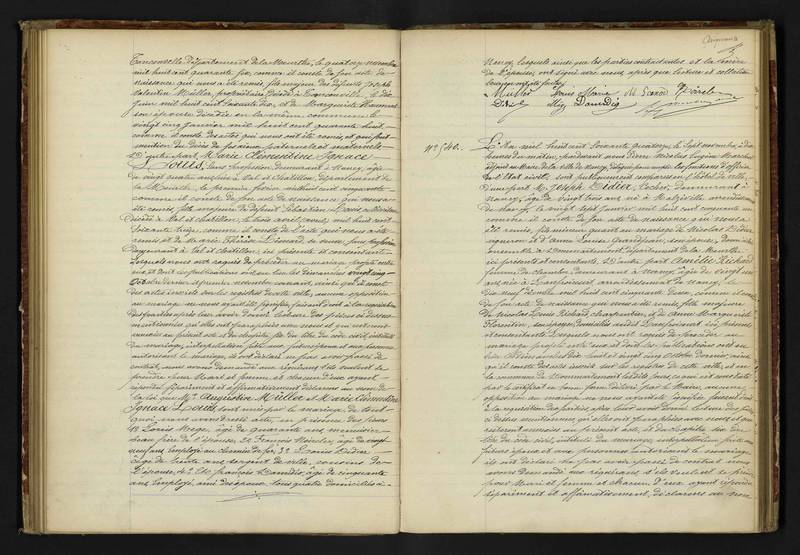 Franconville Département de la Meurthe, le quatorze novembre
mil huit cent quarante six, comme il conste de son acte de
naissance qui nous a été remis, fils majeur des défunts Joseph
Valentin Müller, propriétaire décédé à Franconville, le dix
Juin mil huit cent soixante dix, et de Marguerite
son épouse décédée en la même commune le
vingt cinq Janvier mil huit cent quarante huit,
comme il conste des actes qui nous ont été remis, et
de décès de ses aïeux paternels et maternels
D'autre part Marie Clémentine Ignace
Louis, sans profession, demeurant à Nancy, âgée
de vingt quatre ans, née à Val et Châtillon, département de
la Meurthe, le premier février mil huit cent cinquante
comme il conste de son acte de naissance qui nous a
été remis, fille majeure de défunt Sébastien Louis
décédé à Val et Châtillon, le trois avril mil huit cent
soixante treize, comme il conste de l'acte qui nous a été
remis et de Marie Thérèse Liénard, sa veuve, sans profession
demeurant à Val et Châtillon, ici présente et consentante
Lesquels nous ont requis de procéder au mariage projeté entre
eux, et dont les publications ont eu lieu les dimanches vingt cinq
Octobre dernier et premier novembre courant, ainsi qu'il conste
des actes inscrits sur le registre de cette ville, aucune opposition
au mariage ne nous ayant été signifiée, faisant droit à la réquisition
des parties après leur avoir donné lecture des pièces ci dessus
mentionnées qu'elles ont paraphées avec nous et qui resteront
annexées au présent acte, et du chapitre six du titre du code civil, intitulé
du mariage, interpellation faite aux futurs époux et aux personnes
autorisant le mariage, ils ont déclaré ne pas avoir passé de
contrat, nous avons demandé aux requérants s'ils veulent se
prendre pour Mari et femme, et chacun d'eux ayant
répondu séparément et affirmativement déclarons au nom de
la loi que Mr. Augustin Müller et Marie Clémentine
Ignace Louis, sont unis par le mariage, de tout
quoi avons dressé acte, en présence des sieurs
1º Louis âgé de quarante ans, menuisier
beau frère de l'épouse, 2º François âgé de vingt
neuf ans employé au chemin de fer, 3º Louis Didier
âgé de trente ans, sergent de ville, cousins de
l'épouse, et 4º François Daundis, âgé de cinquante
ans, employé, ami des époux, tous quatre domiciliés à
Nancy, lesquels ainsi que les parties contractantes et la mère
de l'épouse, ont signé avec nous, après que lecture et collation
leur en ont été faites
Muller Louis Marie
Daundis
Nº 540.
L'An mil huit cent soixante quatorze, le Sept novembre, à dix
heures du matin, pardevant nous Pierre Nicolas Eugène
adjoint au Maire de la ville de Nancy, remplissant les fonctions d'officier
de l'Etat civil, sont publiquement comparus en l'hôtel de ville,
D'une part Mr. Joseph Didier, Cocher, demeurant à
Nancy, âgé de vingt trois ans, né à arrondissement
de Nancy, le vingt sept Janvier mil huit cent cinquante un
comme il conste de son acte de naissance qui nous a
été remis, fils mineur quant au mariage de Nicolas Didier
vigneron et d'Anne Louise Grandjean, son épouse, domiciliés
ensemble à département de la Meurthe,
ici présents et consentants. D'autre part Amélie Richard
femme de chambre, demeurant à Nancy, âgée de vingt un
ans, née à arrondissement de Nancy, le
dix neuf mil huit cent cinquante deux, comme il conste
de son acte de naissance qui nous a été remis, fille majeure
de Nicolas Louis Richard, charpentier, et de Anne Marguerite
Florentin, son épouse, domiciliés ensemble ici présents
et consentants. Lesquels nous ont requis de procéder au
mariage projeté entre eux et dont les publications ont eu
lieu les dimanches dix huit et vingt cinq Octobre dernier, ainsi
qu'il conste des actes inscrits sur le registre de cette ville, et en
la commune de
par le certificat en bonne forme délivré par le Maire, aucune
opposition au mariage ne nous ayant été signifiée, faisant droit
à la réquisition des parties, après leur avoir donné lecture des pièces
ci dessus mentionnées qu'elles ont paraphées avec nous et qui
resteront annexées au présent acte, et du chapitre six du
titre du code civil, intitulé du mariage, interpellation faite aux
futurs époux et aux personnes autorisant le mariage,
ils ont déclaré ne pas avoir passé de contrat, nous
avons demandé aux requérants s'ils veulent se prendre
pour Mari et femme et chacun d'eux ayant répondu
séparément et affirmativement, déclarons au nom